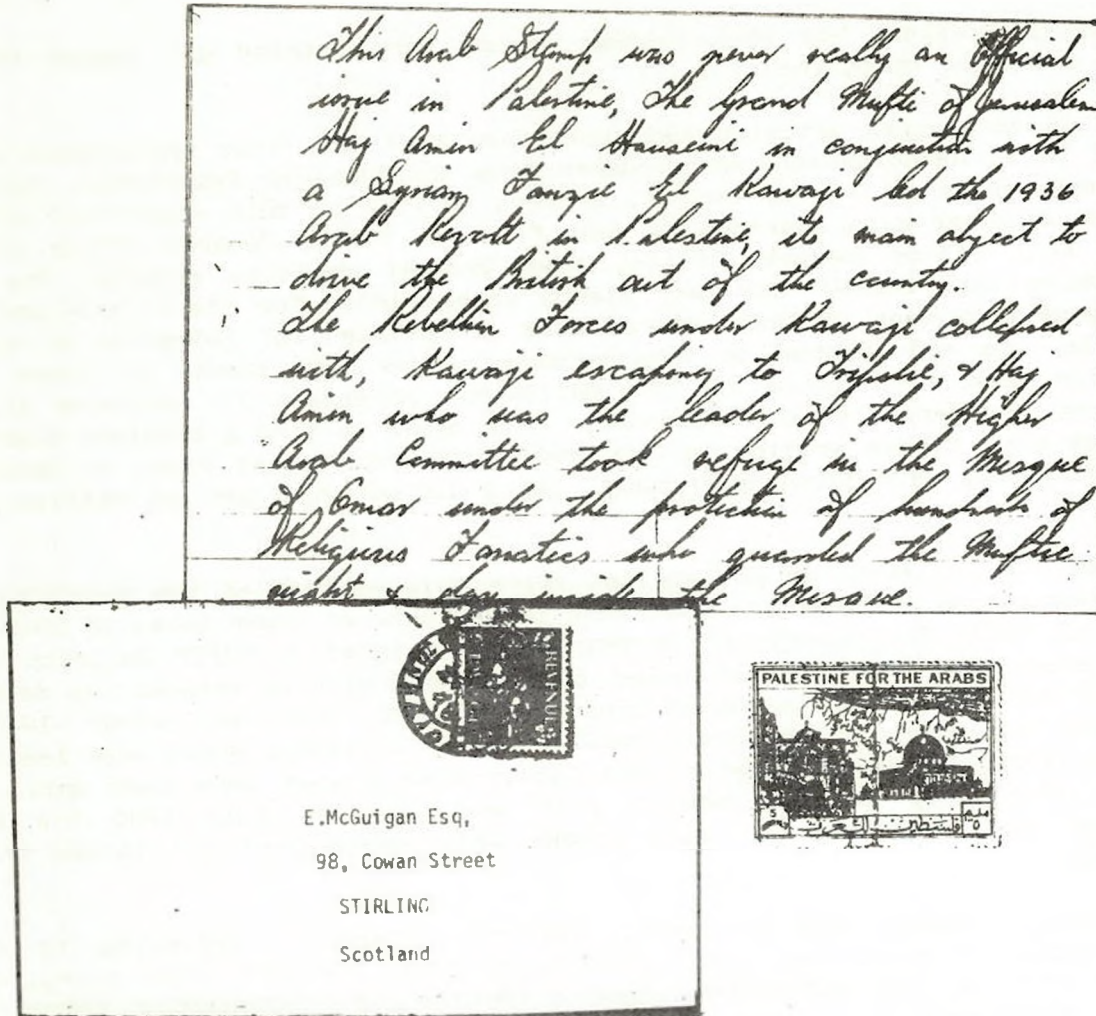 This Arab Stamp was never really an Official
issue in Palestine, The Grand Mufti of Jerusalem
Haj Amin El Hauseini in conjunction with
a Syrian, Fauzie El Kawaji led the 1936
Arab Revolt in Palestine, its main object to
drive the British out of the country.
The Rebellion Forces under Kawaji collapsed
with, Kawaji escaping to & Haj
Amin who was the leader of the Higher
Arab Committee took refuge in the Mosque
of Omar under the protection of hundreds of
Religious Fanatics who guarded the Muftie
night & day inside the Mosque.
REVENUE
E.McGuigan Esq,
98, Cowan Street
STIRLING
Scotland
PALESTINE FOR THE ARABS
5
فلسطين للعرب
مليم
٥